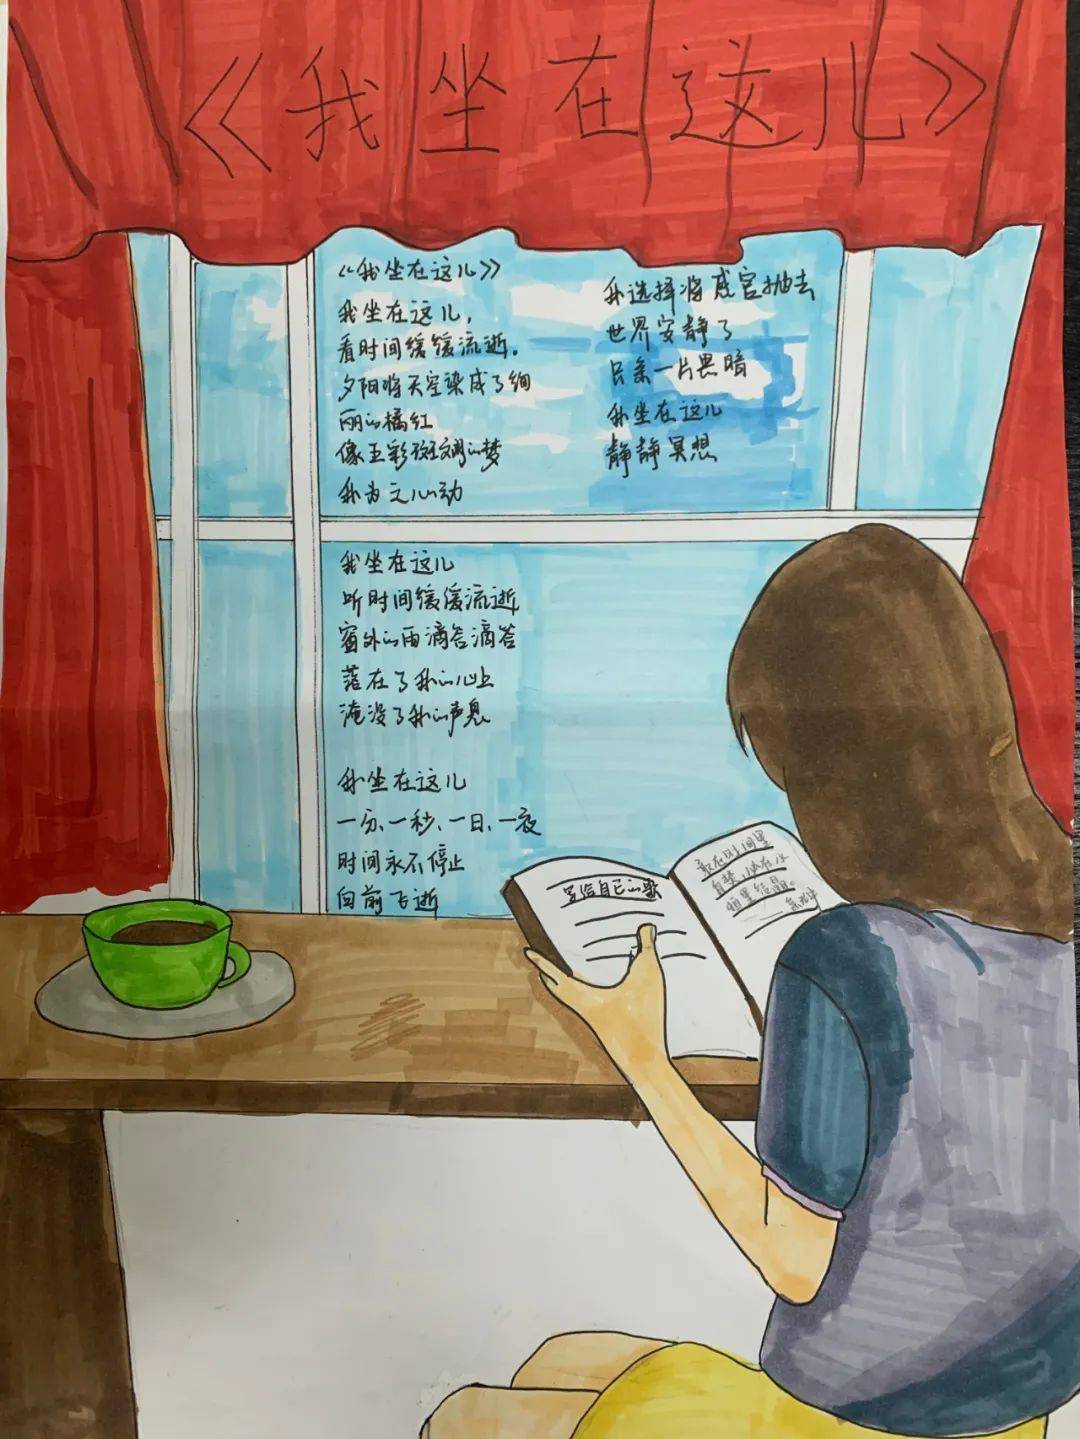 《我坐在这儿》
《我坐在这儿》
我坐在这儿，
看时间缓缓流逝.
夕阳将天空染成了绚
丽的橘红
像五彩斑斓的梦
我为之心动
我坐在这儿
听时间缓缓流逝
窗外的雨滴答滴答
落在了我的心上
淹没了我的声息
我坐在这儿
一分、一秒、一日、一夜
时间永不停止
向前飞逝
我选择将感官抽去
世界安静了
只余一片黑暗
我坐在这儿
静静冥想
写给自己的歌
自焚
里结晶。